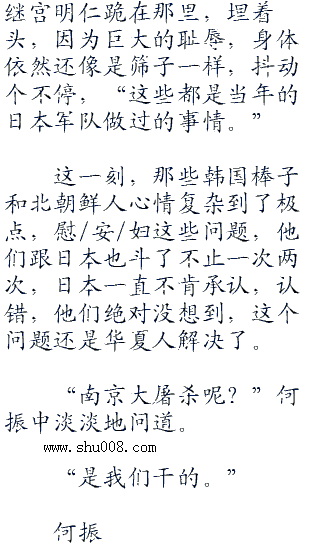 继宫明仁跪在那里，埋着
头，因为巨大的耻辱，身体
依然还像是筛子一样，抖动
个不停，“这些都是当年的
日本军队做过的事情。”
这一刻，那些韩国棒子
和北朝鲜人心情复杂到了极
点，慰/安/妇这些问题，他
们跟日本也斗了不止一次两
次，日本一直不肯承认，认
错，他们绝对没想到，这个
问题还是华夏人解决了。
“南京大屠杀呢？”何
振中淡淡地问道。
www.shu008.com
“是我们干的。”
何振